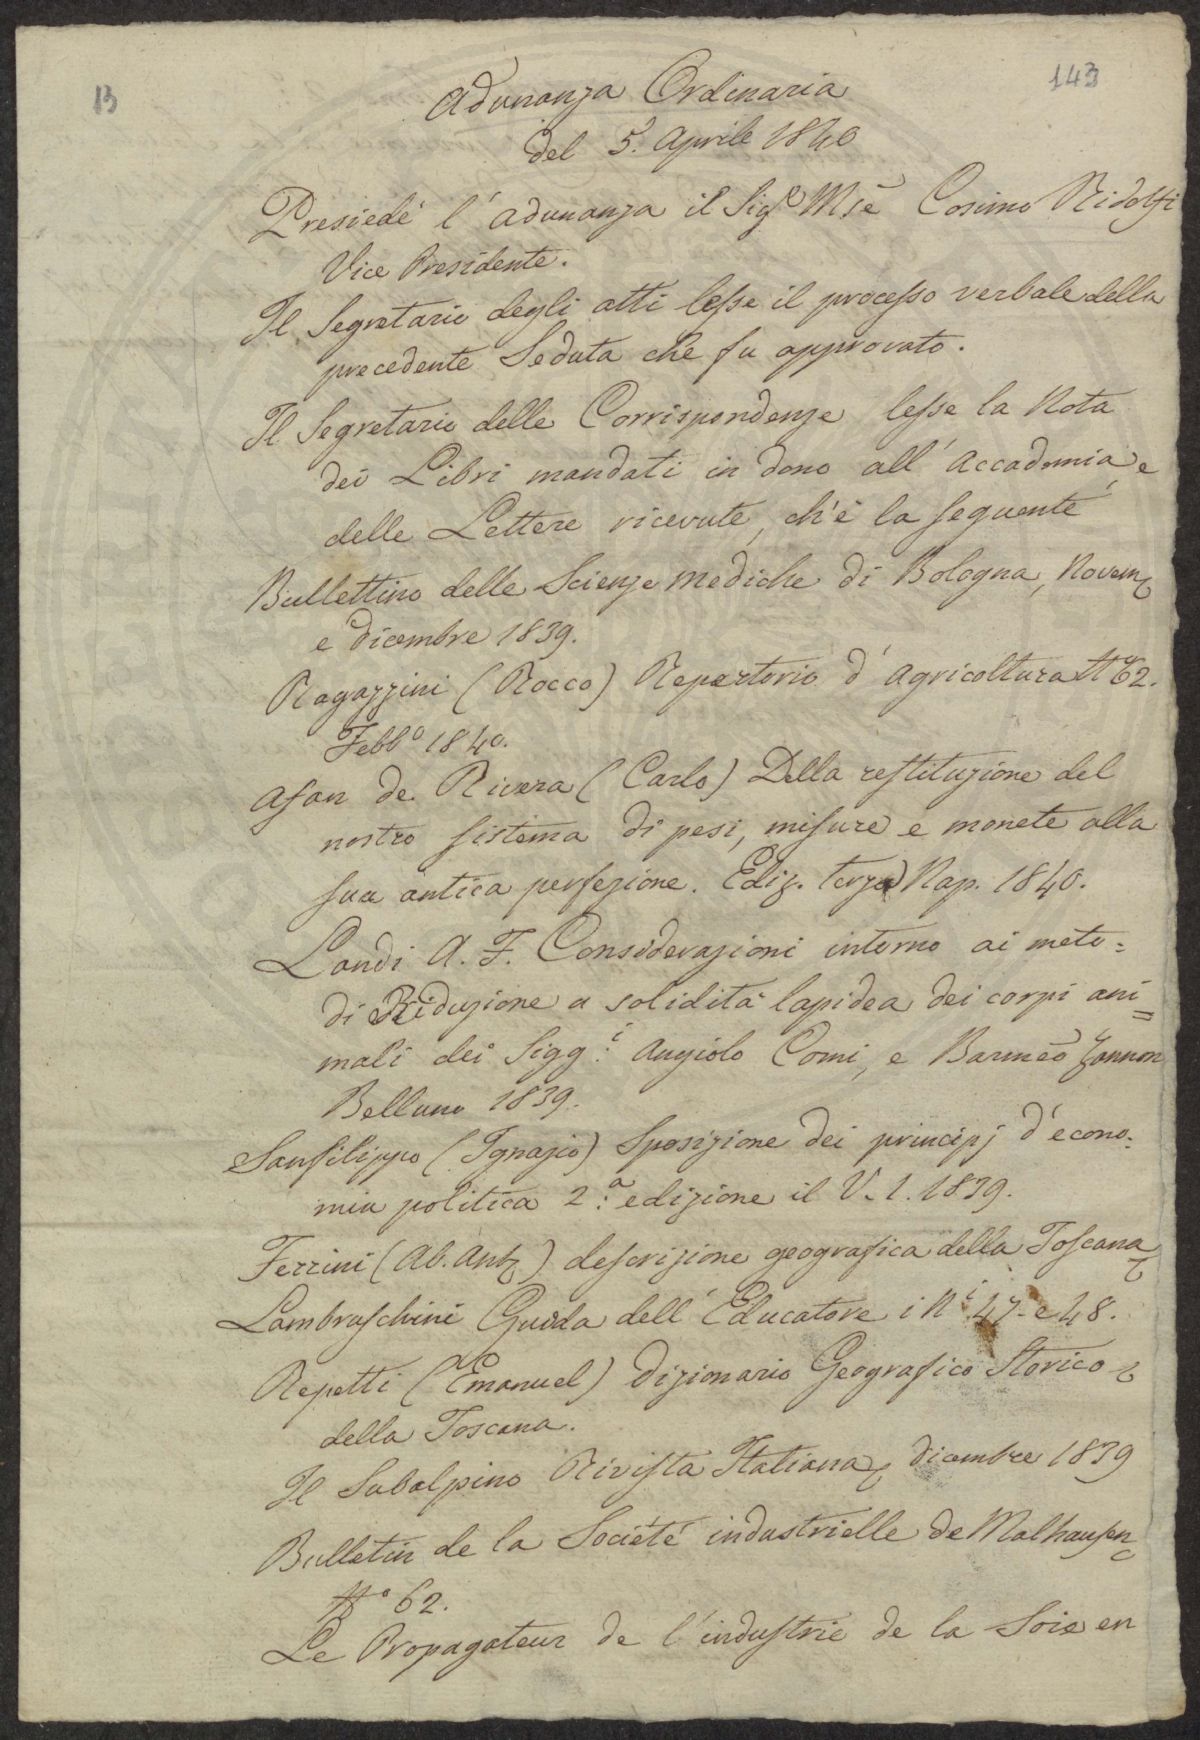 13
143
Adunanza Ordinaria
del 5. Aprile 1840
Presiedé l'adunanza il Sig.e Mse Cosimo Ridolfi
Vice Presidente.
Il Segretario degli atti lesse il processo verbale della
precedente Seduta che fu approvato.
Il Segretario delle Corrispondenze lesse la Nota
dei Libri mandati in dono all'Accademia, e
delle Lettere ricevute, ch'è la seguente
Bullettino delle Scienze mediche di Bologna, Novem
e dicembre 1839.
Ragazzini (Rocco) Repertorio d'agricoltura No 62.
Febb.o 1840.
Afan de Rivera (Carlo) Della restituzione del
nostro sistema di pesi, misure e monete alla
sua antica perfezione. Ediz. terza Nap. 1840.
Landi A. F. Considerazioni intorno ai meto=
di Riduzione a solidità lapidea dei corpi ani=
mali dei Sigg.i Angiolo Comi, e Barmeo Zannon
Belluno 1839.
Sanfilippo (Ignazio) Sposizione dei principj d'econo=
mia politica 2.a edizione il V. 1. 1839.
Ferrini (Ab. Ant) descrizione geografica della Toscana
Lambruschini Guida dell'Educatore i Ni 47. e 48.
Repetti (Emanuel) dizionario Geografico Storico
della Toscana.
Il Subalpino Rivista Italiana, dicembre 1839
Bulletin de la Société industrielle de Malhausen
No 62.
Le Propagateur de l'industrie de la Soie en